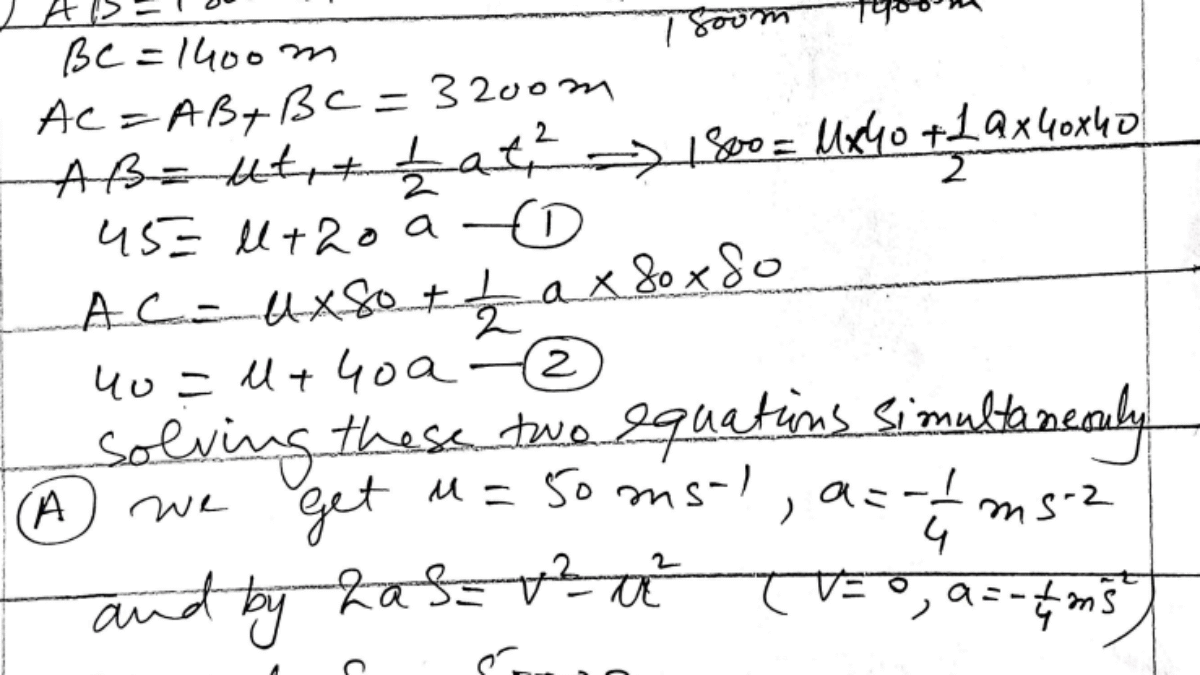 1800m 1400m
BC = 1400 m
AC = AB + BC = 3200 m
AB = ut₁ + 1/2 at₁² ⇒ 1800 = u×40 + 1/2 a×40×40
45 = u + 20 a — ①
AC = u×80 + 1/2 a × 80×80
40 = u + 40a — ②
solving these two equations simultaneously
(A) we get u = 50 ms-1, a = -1/4 ms-2
and by 2aS = v² - u² (V = 0, a = -1/4 ms-2)